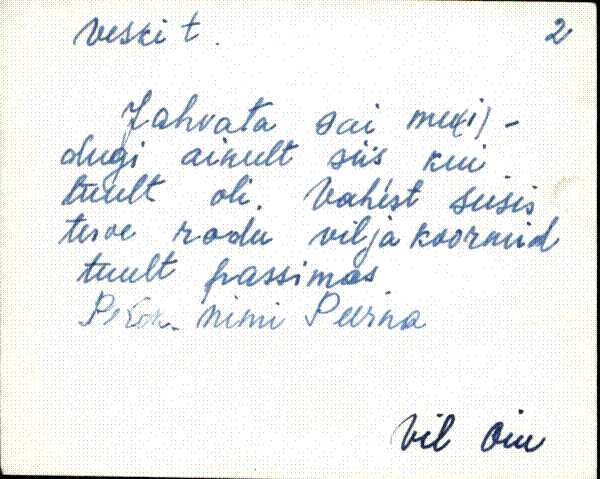 veski t. 2
Jahvata sai mu(i)-
dugi ainult siis kui
tuult oli. Vahest seisis
terve rodu viljakoormid
tuult passimas
nimi Peerna
Vil Oiu